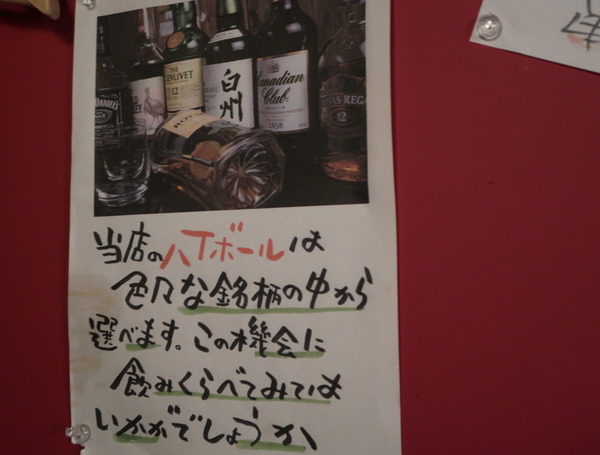 DANIEL'S
THE
GLENLIVET
12
白州
Canadian
Club
1858
REGAL
12
当店のハイボールは
色々な銘柄の中から
選べます。この機会に
飲みくらべてみては
いかがでしょうか